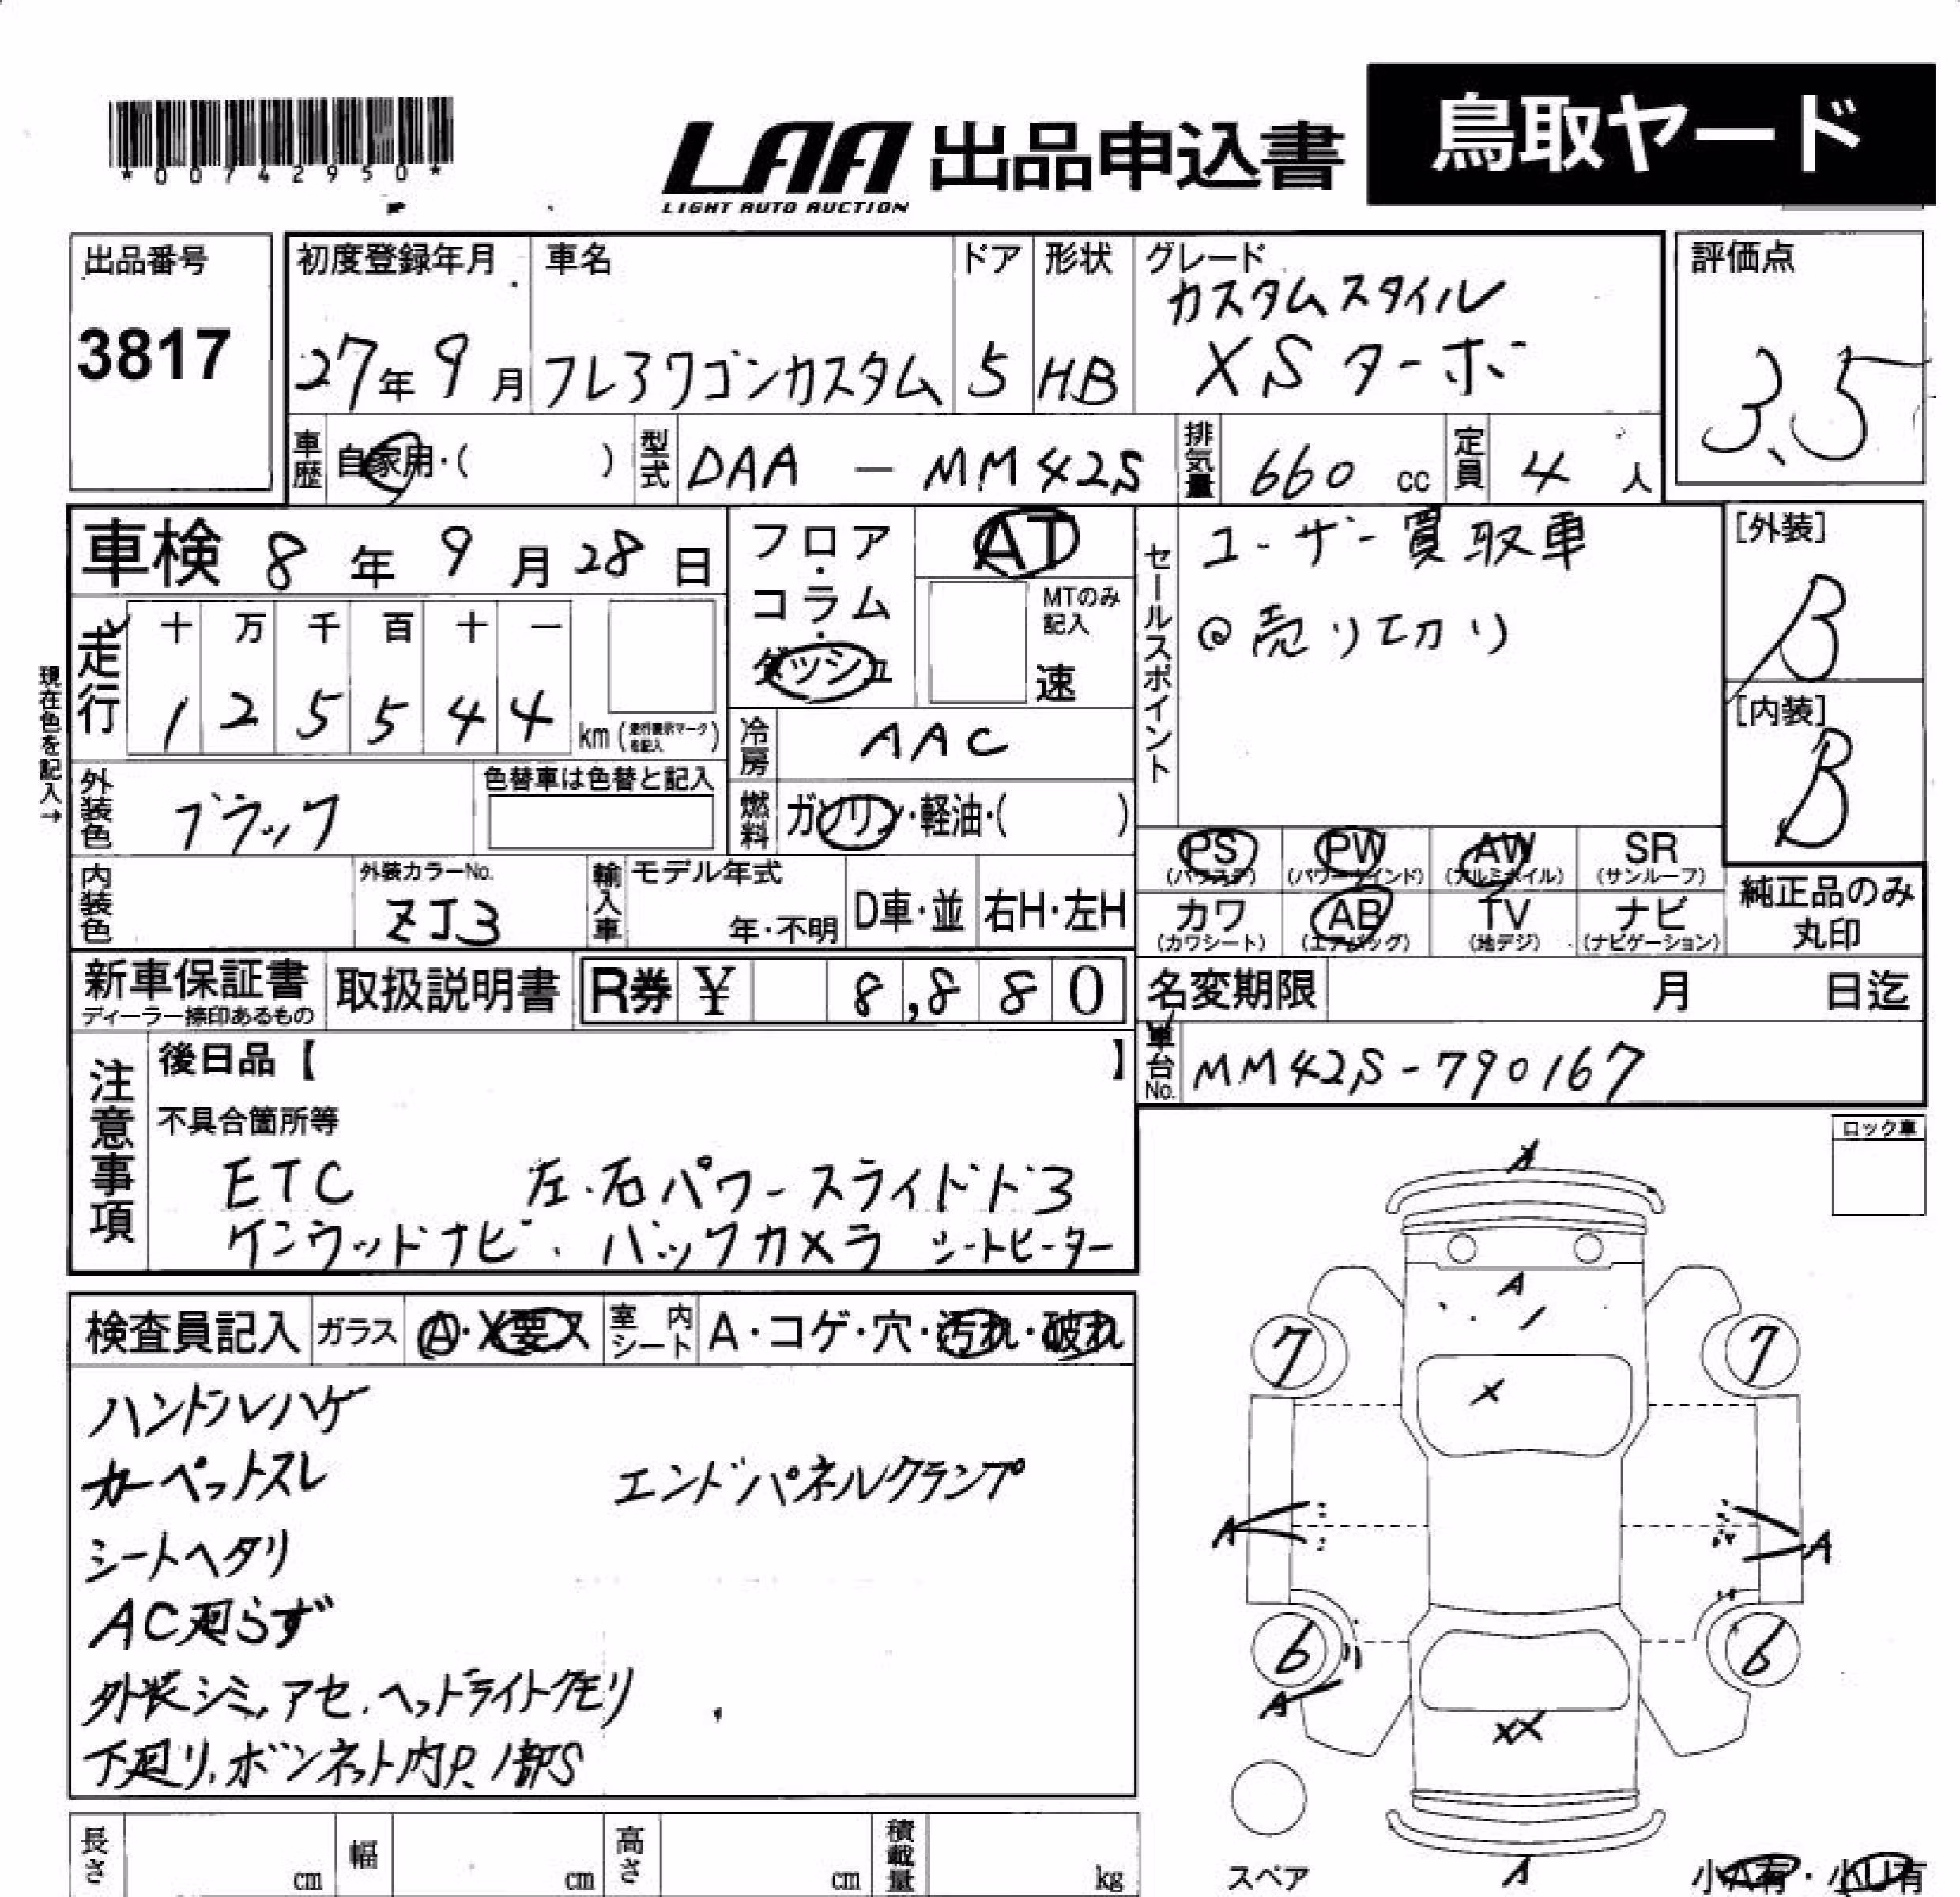 *00742950*
LAA 出品申込書
LIGHT AUTO AUCTION
鳥取ヤード
出品番号
3817
初度登録年月
27年9月
車名
フレヨワゴンカスタム
ドア
5
形状
HB
グレード
カスタムスタイル
XSターボ
評価点
3.5
車歴
自家用・( )
型式
DAA - MM42S
排気量
660 cc
定員
4 人
車検 8年9月28日
フロア・コラム・ダッシュ
AT
MTのみ記入
速
セールスポイント
ユーザー買取車
◎売り切り
[外装]
B
[内装]
B
現在色を記入→
走行
十 万 千 百 十 一
1 2 5 5 4 4
km (走行表示マークを記入)
冷房
AAC
外装色
ブラック
色替車は色替と記入
燃料
ガソリン・軽油・( )
PS (パワステ)
PW (パワーウインド)
AW (アルミホイル)
SR (サンルーフ)
カワ (カワシート)
AB (エアバッグ)
TV (地デジ)
ナビ (ナビゲーション)
純正品のみ丸印
内装色
外装カラーNo.
ZJ3
輸入車
モデル年式
年・不明
D車・並
右H・左H
新車保証書
ディーラー捺印あるもの
取扱説明書
R券 ¥ 8,880
名変期限 月 日迄
車台No.
MM42S-790167
注意事項
後日品【 】
不具合箇所等
ETC 左・右パワースライドドヨ
ケンウッドナビ・バックカメラ シートヒーター
ロック車
検査員記入
ガラス
A・X要ス
室内シート
A・コゲ・穴・汚れ・破れ
ハンドルハゲ
カーペットスレ エンドパネルクランプ
シートヘタリ
AC廻らず
外装シミ、アセ、ヘッドライトクモリ
下廻り、ボンネット内P、1部S
A
A
7 7
X
A A
6 6
A
XX
A
スペア
小A有・小U有
長さ cm
幅 cm
高さ cm
積載量 kg